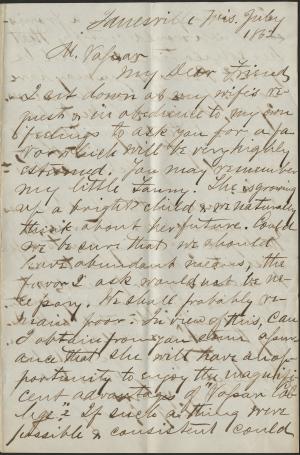 Janesville Wis. July
1862
M. Vassar
My Dear Friend
I sit down at my wife's re-
quest & in obedience to my own
feelings to ask you for a fa-
vor which will be very highly
esteemed. You may remember
my little Fanny. She is growing
up a bright child & we naturally
think about her future. Could
we be sure that we should
have abundant means, the
favor I ask would not be ne-
cessary. We shall probably re-
main poor. In view of this, can
I obtain from you some assur-
ance that she will have an op-
portunity to enjoy the magnifi-
cent advantages of "Vassar Col-
lege." If such a thing were
possible & consistent could